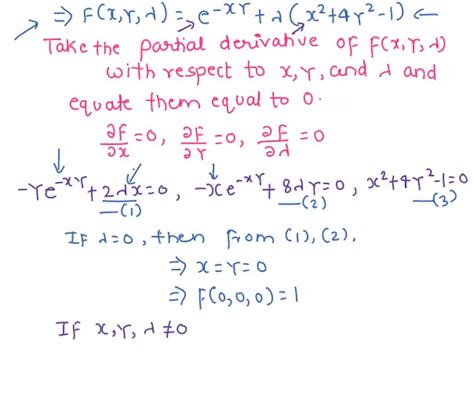 ⇒ F(x,y,λ) = e^-xy + λ(x²+4y²-1) ←
Take the partial derivative of F(x,y,λ)
with respect to x,y, and λ and
equate them equal to 0.
∂F/∂x = 0, ∂F/∂y = 0, ∂F/∂λ = 0
-ye^-xy + 2λx = 0, -xe^-xy + 8λy = 0, x²+4y²-1 = 0
—(1) —(2) —(3)
If λ=0, then from (1),(2),
⇒ x=y=0
⇒ F(0,0,0) = 1
If x,y,λ ≠ 0